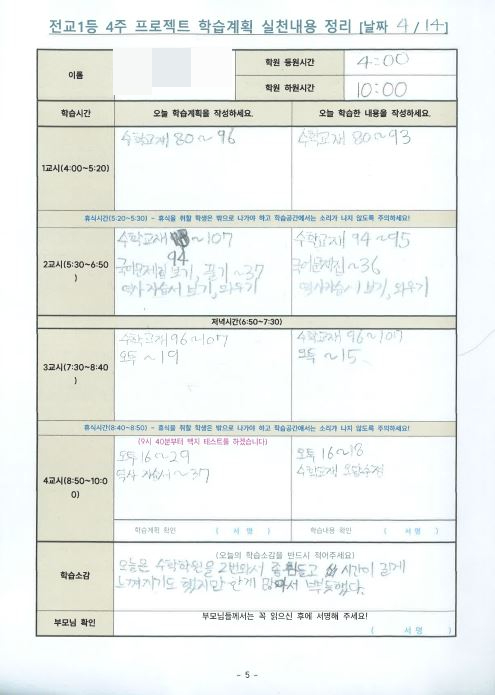 전교1등 4주 프로젝트 학습계획 실천내용 정리 [날짜 4/14]
이름
학원 등원시간 4:00
학원 하원시간 10:00
학습시간 오늘 학습계획을 작성하세요. 오늘 학습한 내용을 작성하세요.
1교시(4:00~5:20) 수학교재 80~96 수학교재 80~93
휴식시간(5:20~5:30) - 휴식을 취할 학생은 밖으로 나가야 하고 학습공간에서는 소리가 나지 않도록 주의하세요!
2교시(5:30~6:50)
수학교재 94~107
국어문제집 보기, 풀기 ~37
역사 자습서 보기, 외우기
수학교재 94~95
국어문제집 ~36
역사 자습서 보기, 외우기
저녁시간(6:50~7:30)
3교시(7:30~8:40)
수학교재 96~107
오투 ~19
수학교재 96~107
오투 ~15
휴식시간(8:40~8:50) - 휴식을 취할 학생은 밖으로 나가야 하고 학습공간에서는 소리가 나지 않도록 주의하세요!
(9시 40분부터 백지 테스트를 하겠습니다)
4교시(8:50~10:00)
오투 16~29
역사 자습서 ~37
오투 16~18
수학교재 오답수정
학습계획 확인 ( 서 명 ) 학습내용 확인 ( 서 명 )
(오늘의 학습소감을 반드시 적어주세요)
학습소감
오늘은 수학학원을 2번와서 좀 힘들고 시간이 길게
느껴지기도 했지만 한게 많아서 뿌듯했다.
부모님 확인
부모님들께서는 꼭 읽으신 후에 서명해 주세요!
( 서 명 )
- 5 -